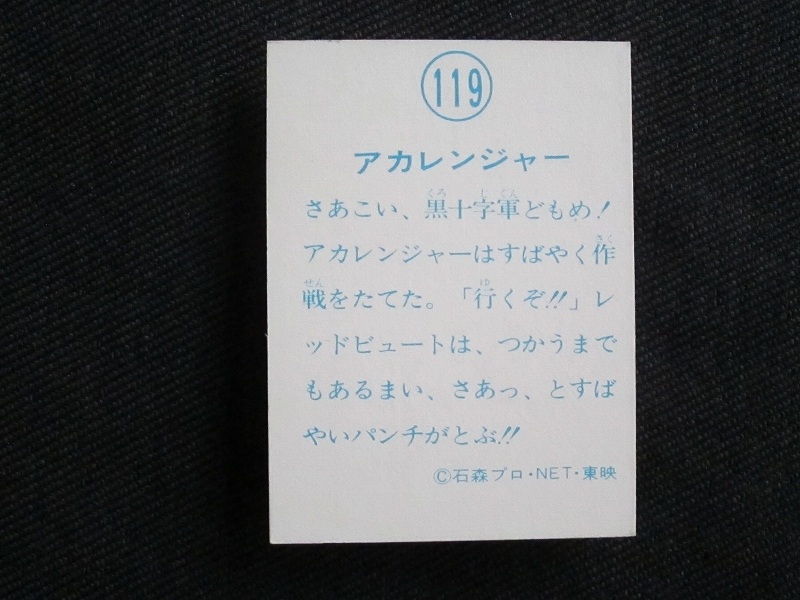 119
アカレンジャー
さあこい、黒十字軍どもめ!
アカレンジャーはすばやく作
戦をたてた。「行くぞ!!」レ
ッドビュートは、つかうまで
もあるまい、さあっ、とすば
やいパンチがとぶ!!
©石森プロ・NET・東映